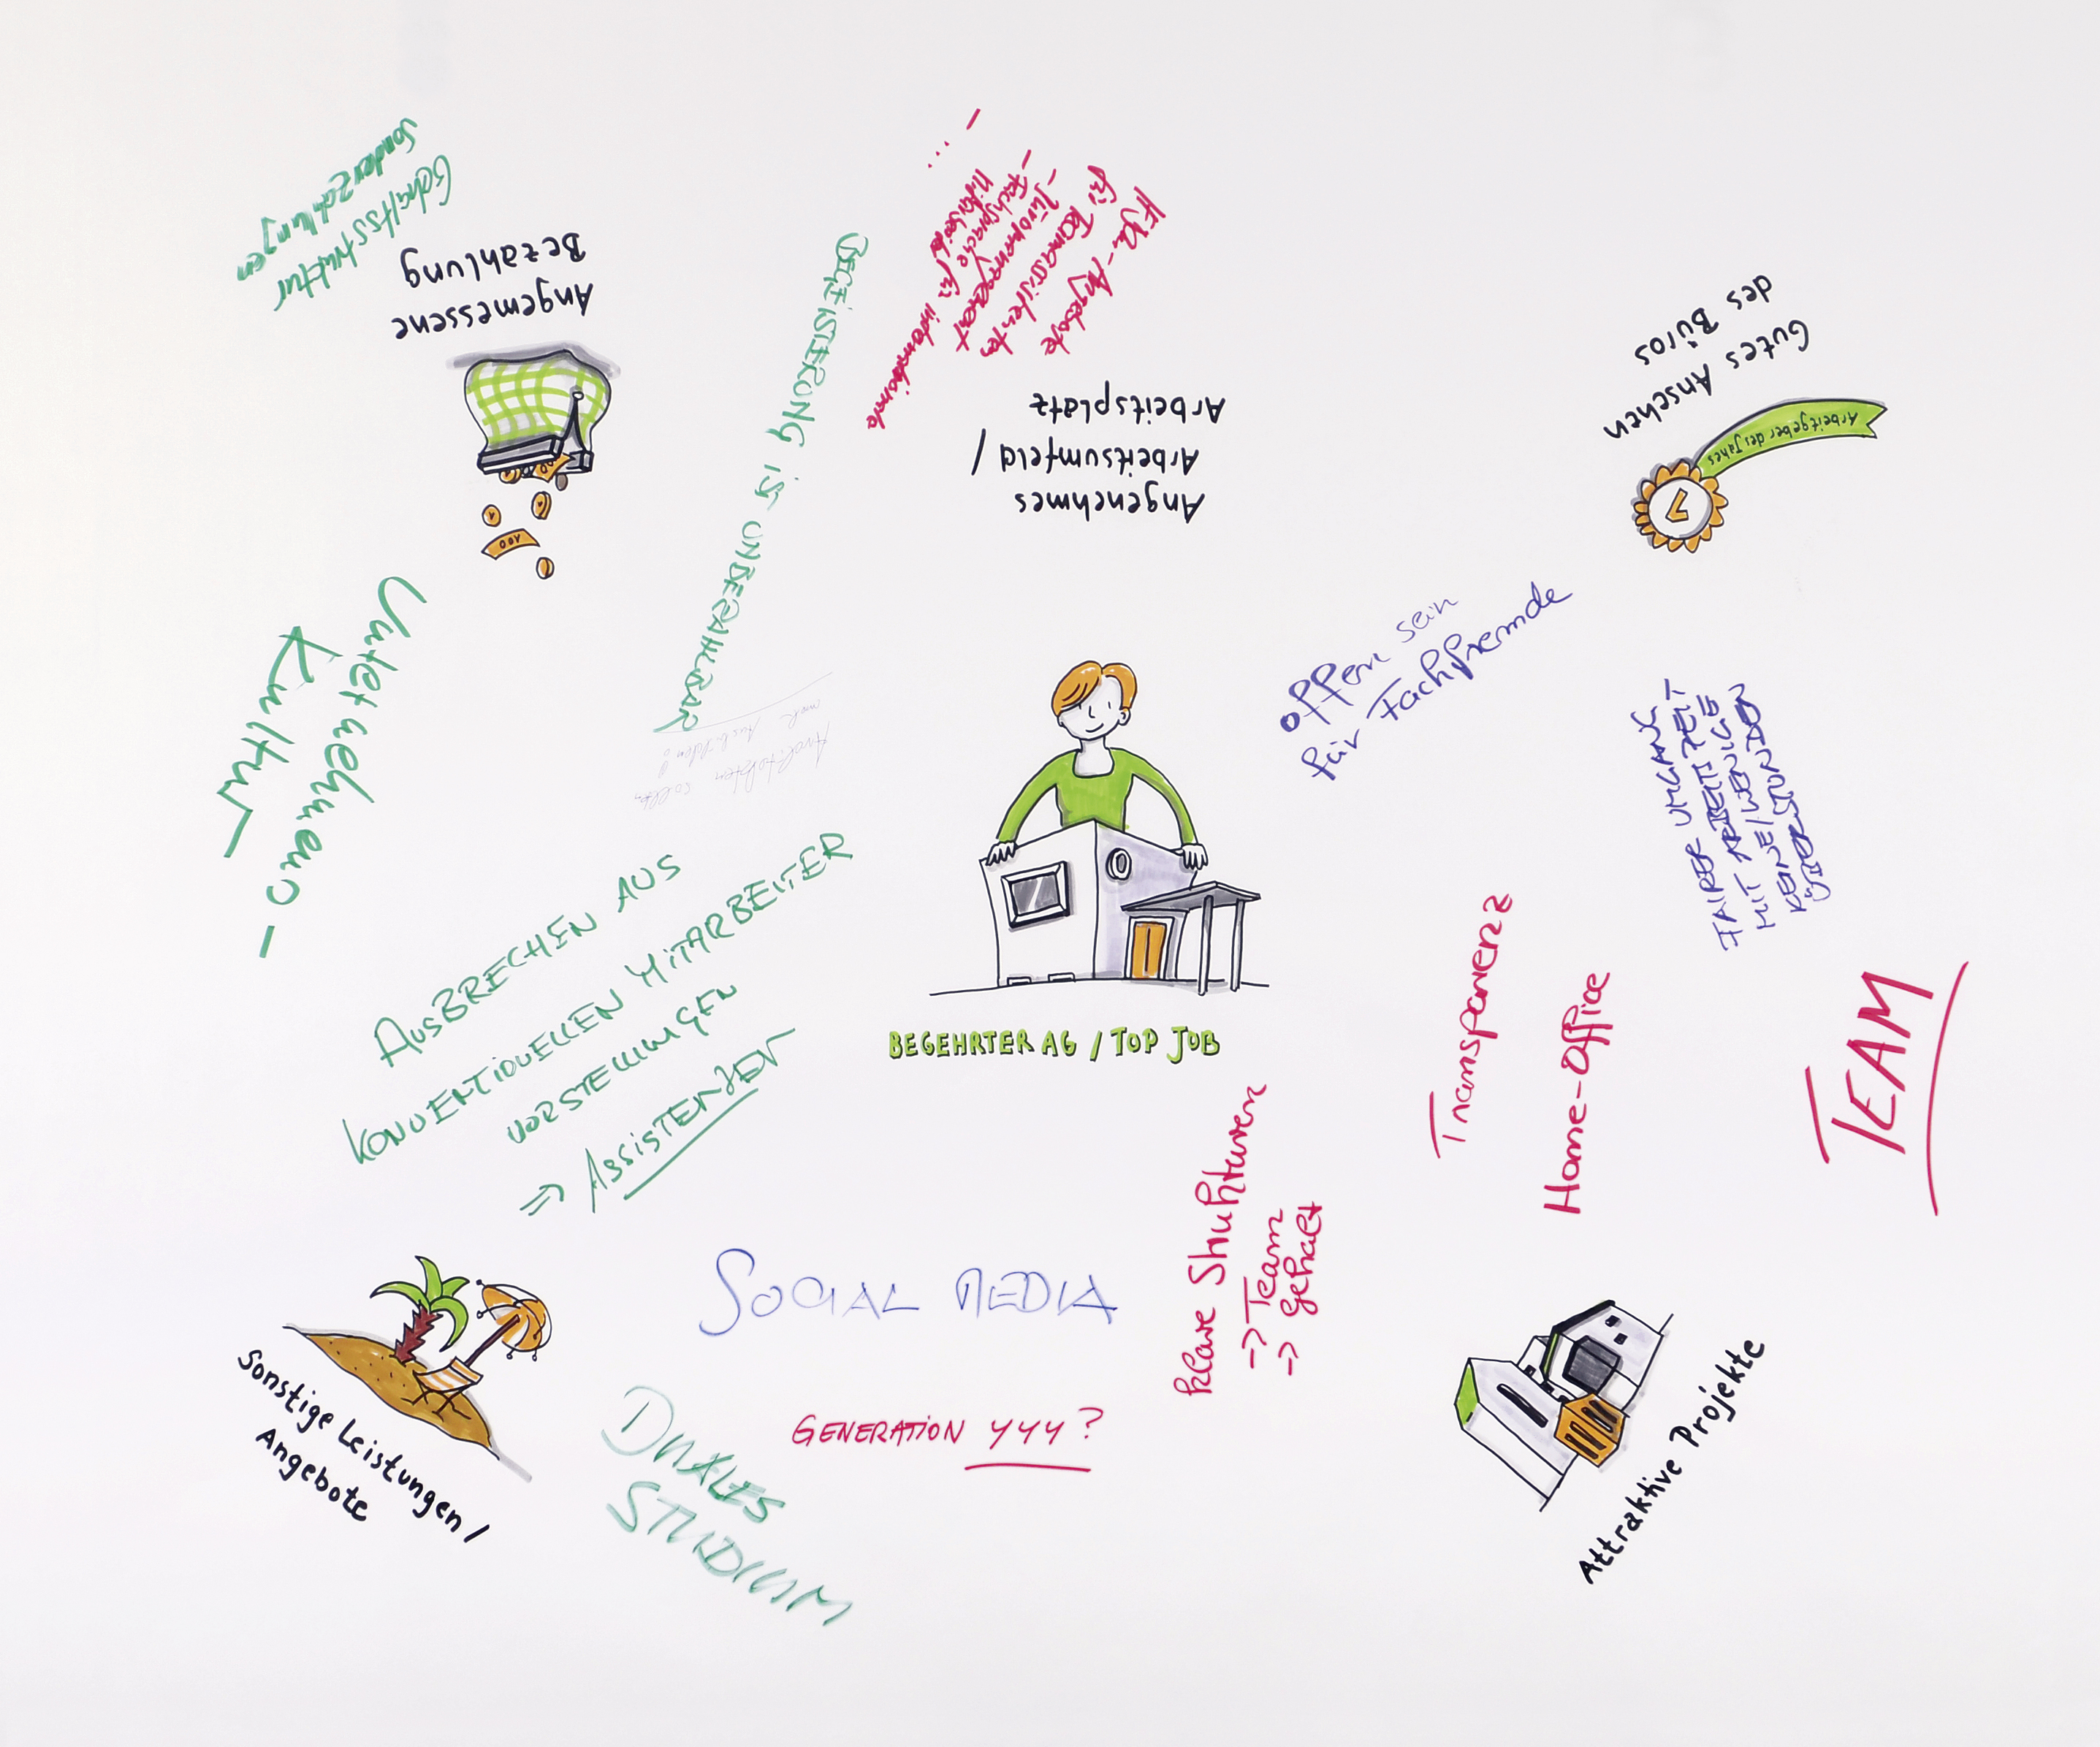 Sonderzahlungen
Gehaltsstruktur
Angemessene
Bezahlung
100
BEGEISTERUNG IS UNBEZAHLBAR
für Teamassistenten
Fachsprache für internationale
...
Angenehmes
Arbeitsumfeld /
Arbeitsplatz
Gutes Ansehen
des Büros
Arbeitgeber des Jahres
1
Unternehmens-
Kultur
Architekten sollten
mehr ausbilden!
offen sein
für Fachfremde
FAIRER UMGANG
MIT ARBEITSZEIT
KEINE/WENIGE
ÜBERSTUNDEN
AUSBRECHEN AUS
KONVENTIONELLEN MITARBEITER
VORSTELLUNGEN
=> ASSISTENZEN
BEGEHRTER AG / TOP JOB
Transparenz
Home-Office
TEAM
klare Strukturen
-> Team
-> Gehalt
SOCIAL MEDIA
GENERATION YYY?
DUALES
STUDIUM
Sonstige Leistungen /
Angebote
Attraktive Projekte